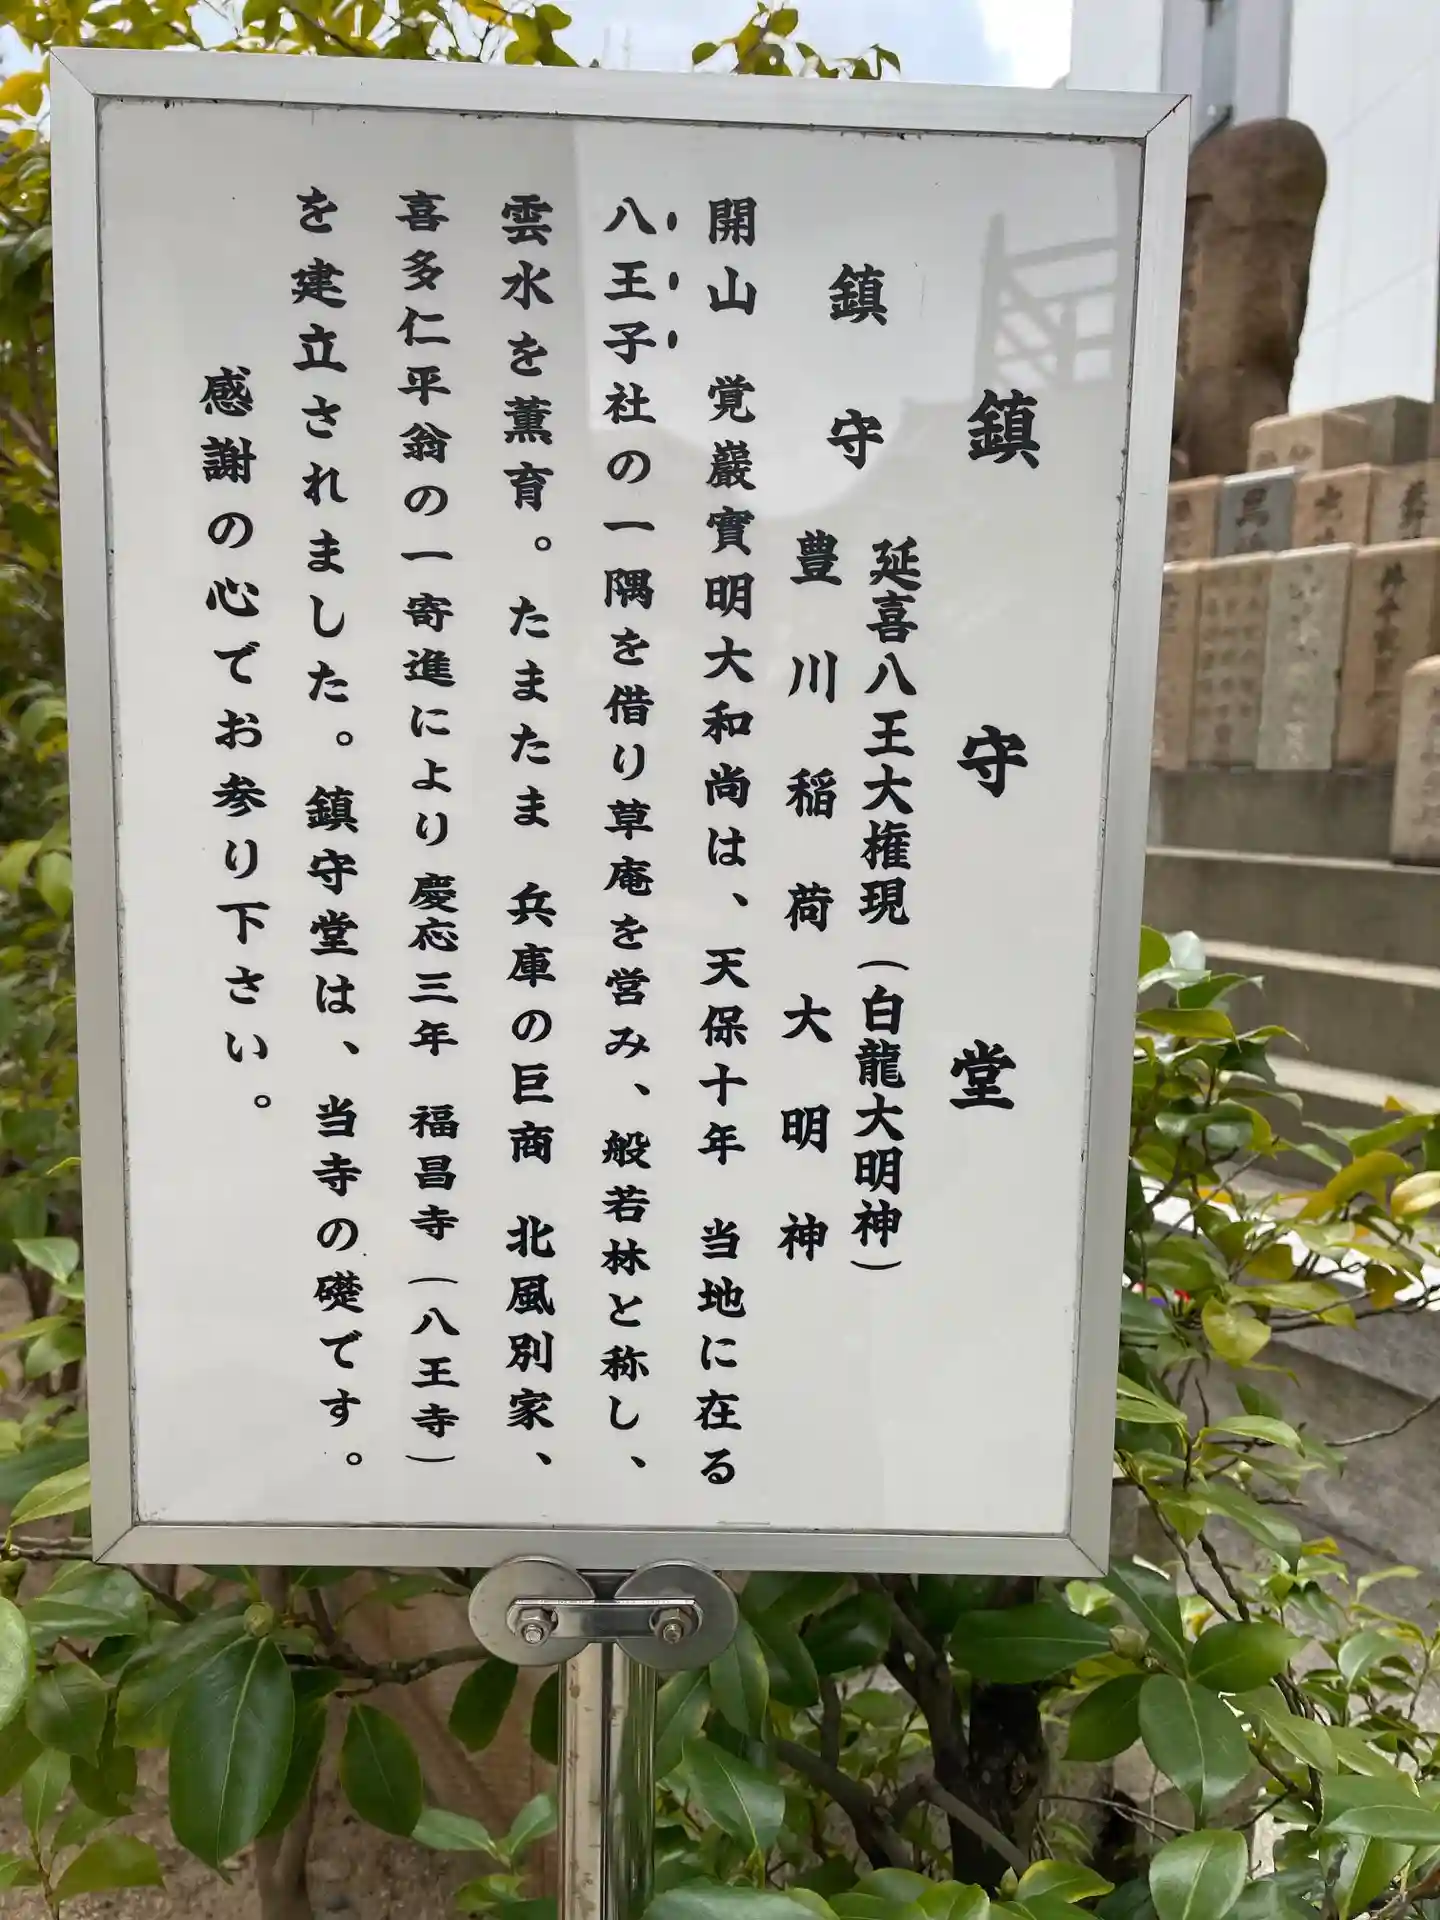 鎮守堂
延喜八王大権現（白龍大明神）
鎮守
豊川稲荷大明神
開山　覚巖實明大和尚は、天保十年　当地に在る
八王子社の一隅を借り草庵を営み、般若林と称し、
雲水を薫育。たまたま　兵庫の巨商　北風別家、
喜多仁平翁の一寄進により慶応三年　福昌寺（八王寺）
を建立されました。鎮守堂は、当寺の礎です。
感謝の心でお参り下さい。